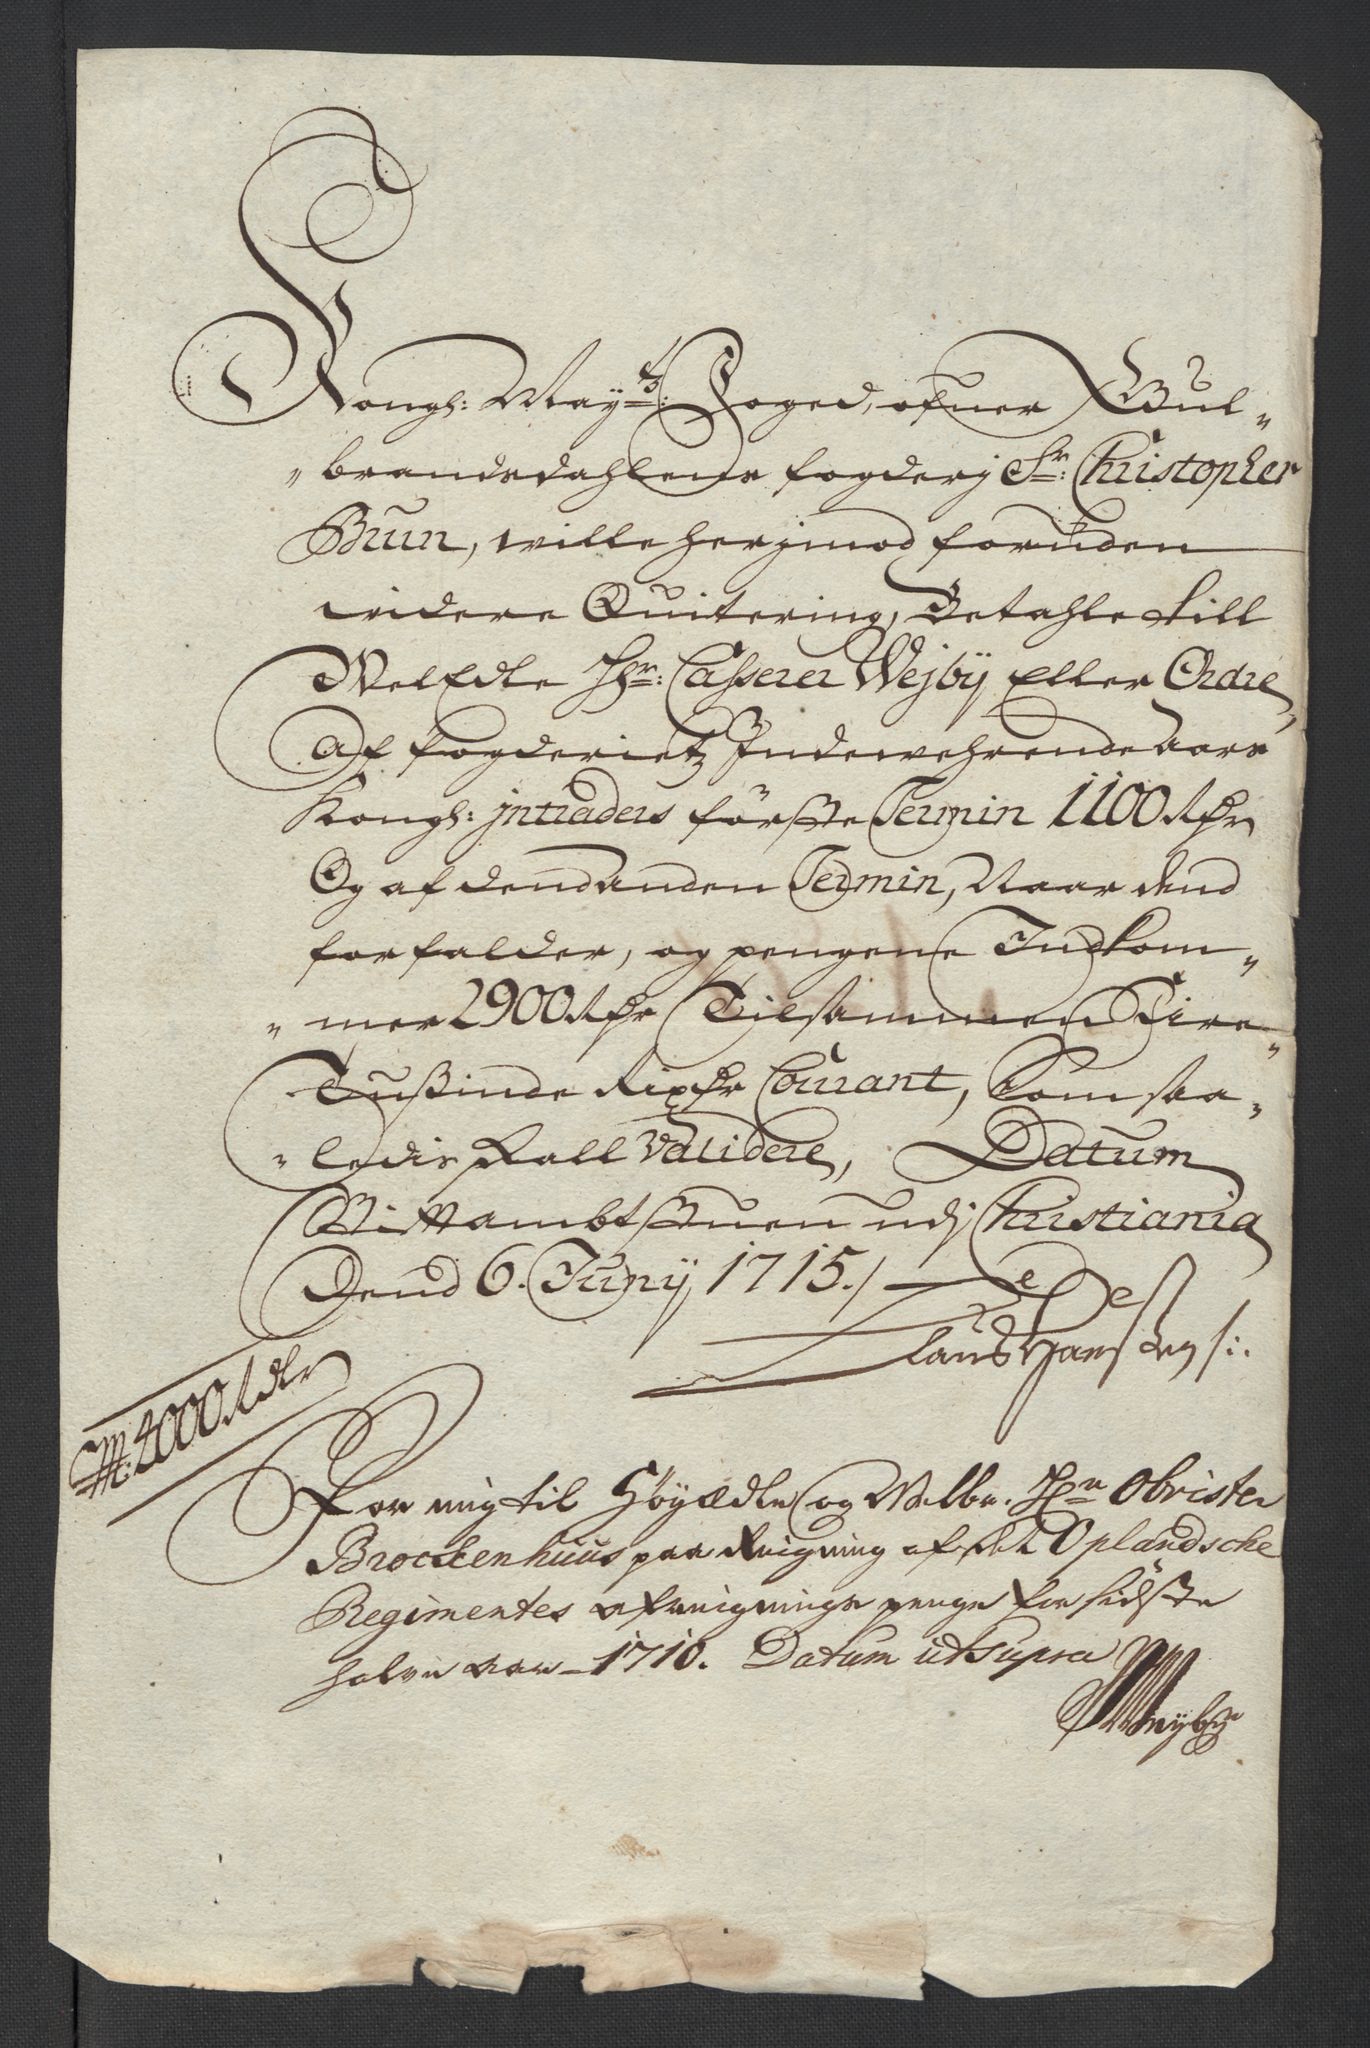 Kongl: May:ts Foged, ofuer Gul-
brandsdahlens fogderj Sr: Christopher
Bun, wille herjmod foruden
widere Quitering, Betahle till
WelEdle Hr: Casserer Wejby Eller Ordre,
Af fogderietz Indewehrende aars
Kongl: jntraders förste Termin 1100 Rdr
Og af dend anden Termin, Naar dend
forfalder, og pengene Indkom-
mer 2900 Rdr Tilsammen Fire
Tusinde Rixdr Courant, Som saa-
ledis skall Validere, Datum
Stiftambtstuen udj Christiania
Dend 6. Juny 1715./
Claus Hansen /:
4000 Rdlr
For mig til Höyædle og Welbr. Hrn Obrister
Brockenhuus paa Reigning af det Oplandsche
Regimentes afreignings penge for sidste
halve aar 1710. Datum ut Supra
Weyby